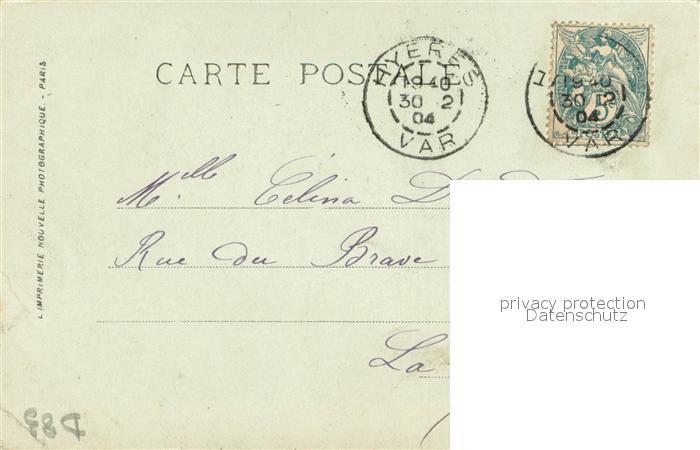 CARTE POSTALE
HYERES
19 40
30 2
04
VAR
19 40
30 2
04
VAR
5
Mlle Célina D
Rue du Brave
La
L'IMPRIMERIE NOUVELLE PHOTOGRAPHIQUE. - PARIS
privacy protection
Datenschutz